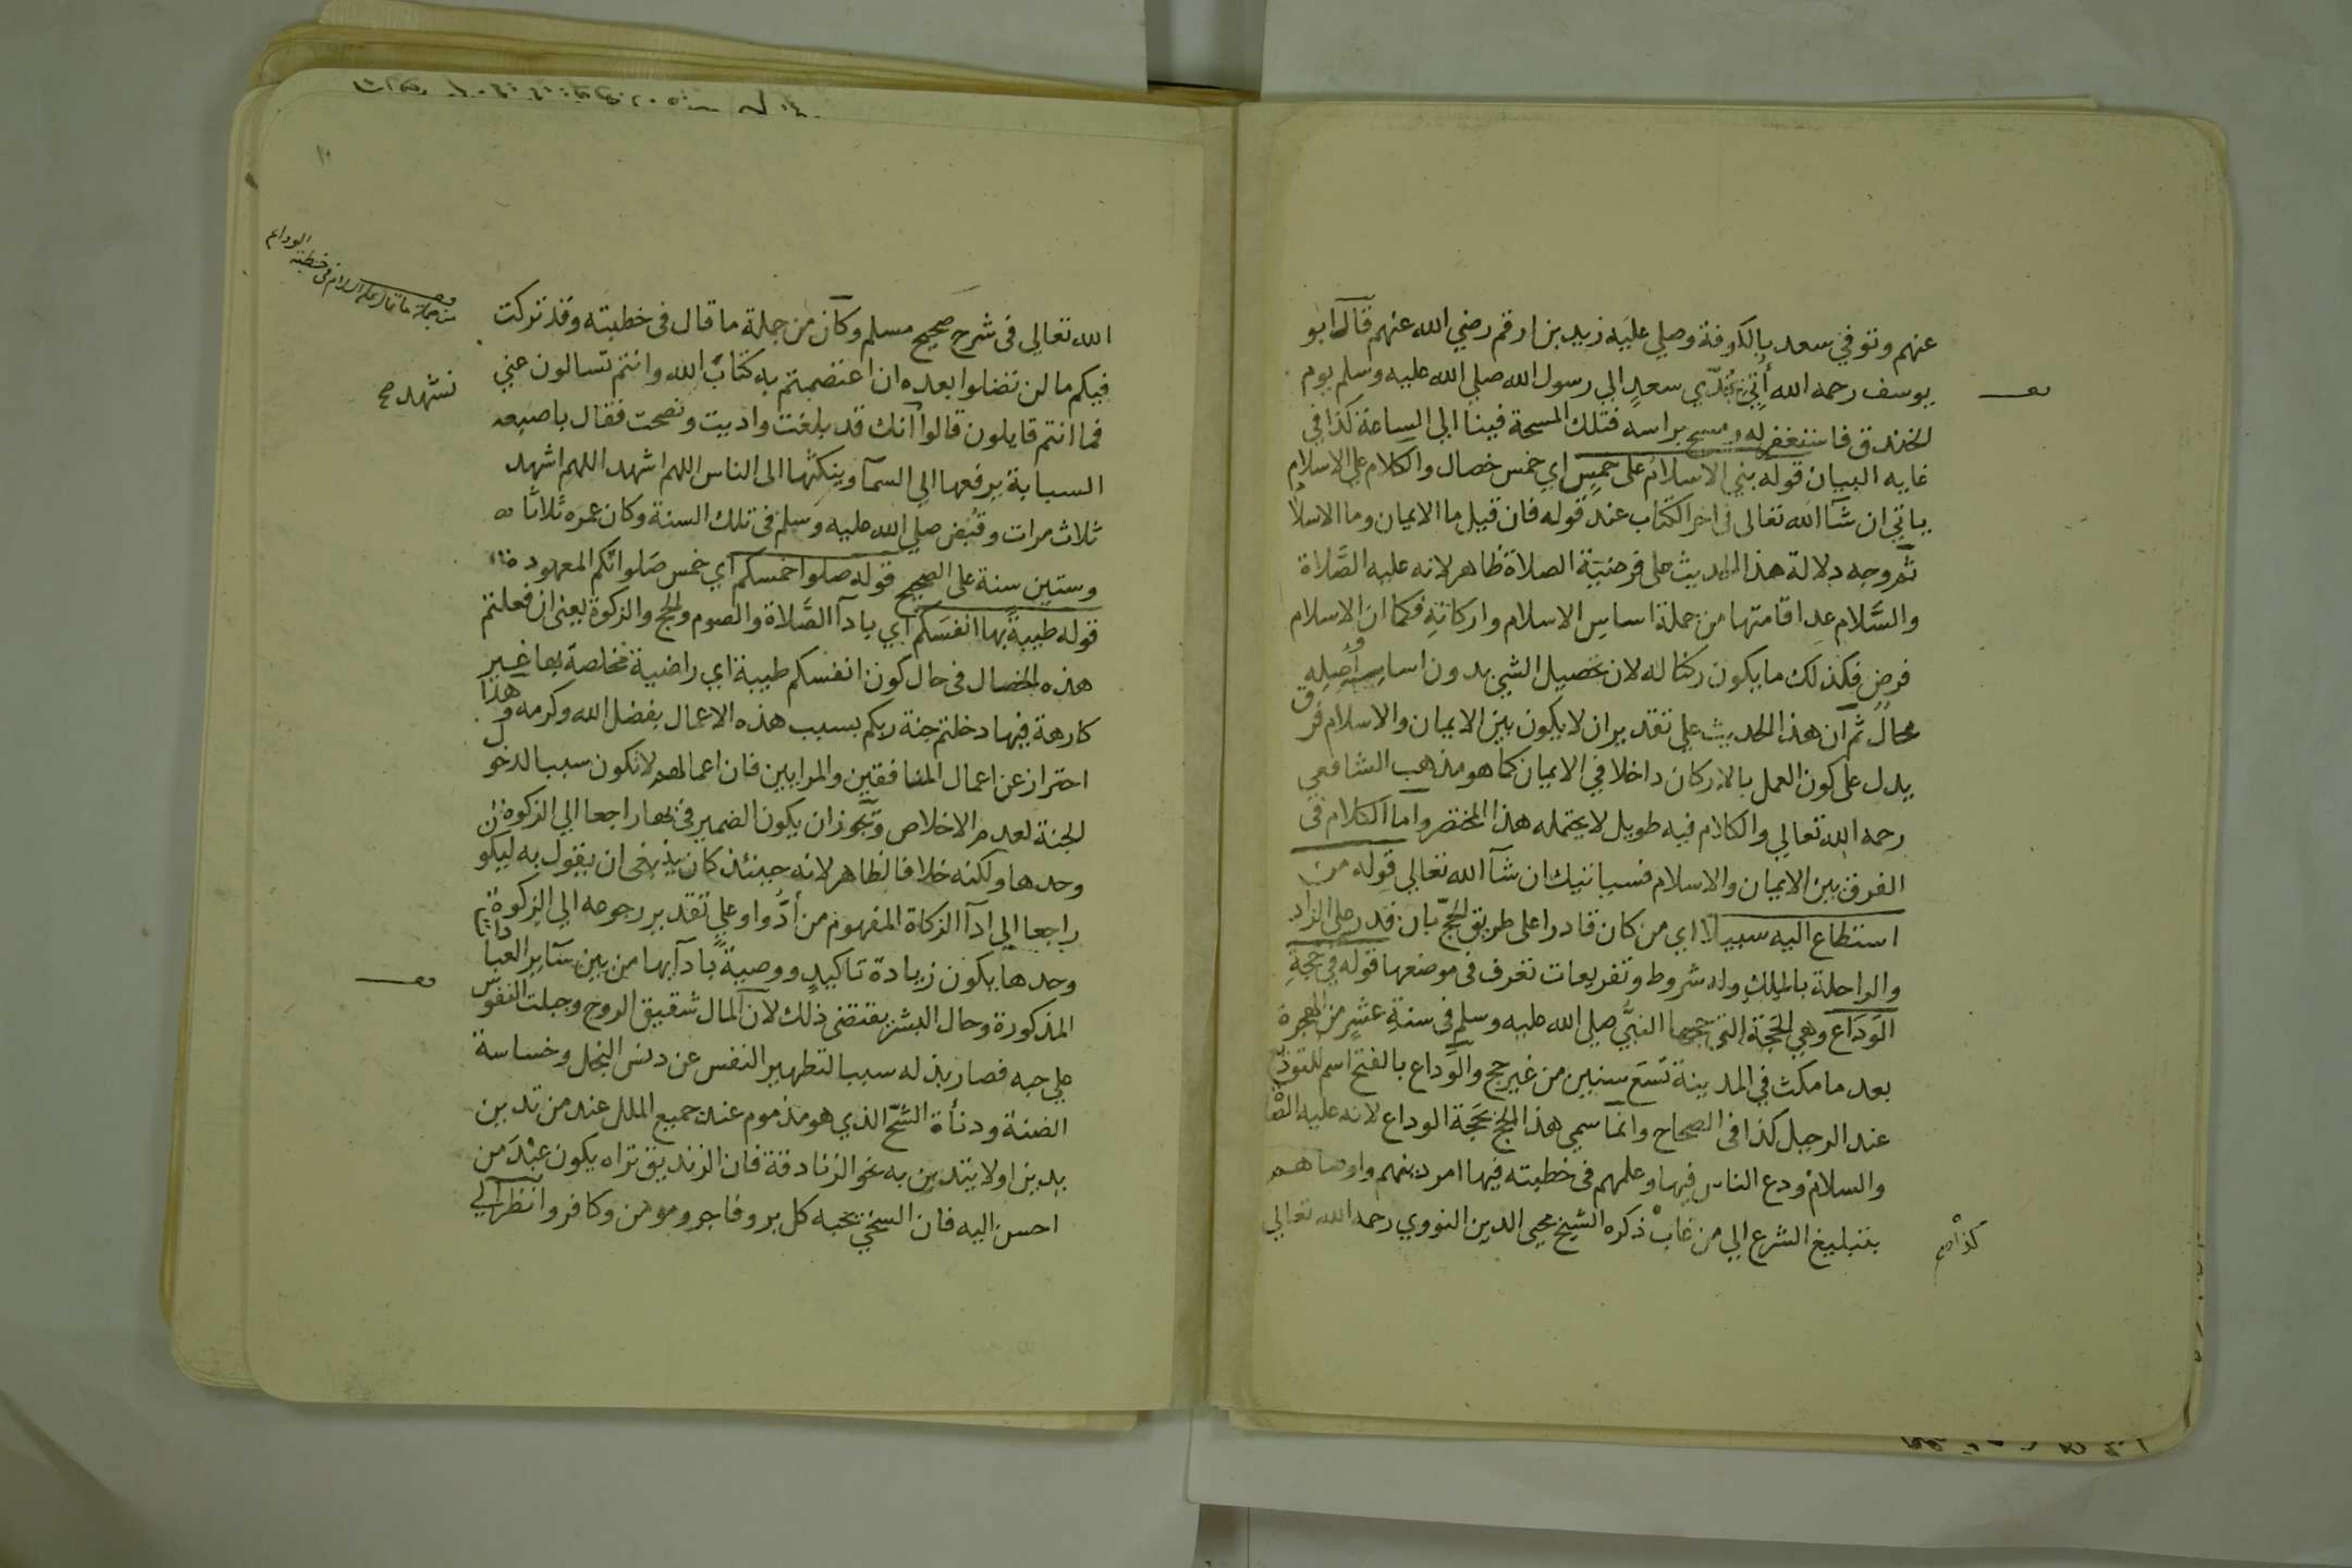 عنهم وتوفي سعد بالكوفة وصلي عليه زيد بن ارقم رضي الله عنهم قال ابو
يوسف رحمه الله أتي بجدي سعد الي رسول الله صلي الله عليه وسلم يوم
الخندق فاستغفر له ومسح براسه فتلك المسحة فينا الي الساعة كذا في
غايه البيان قوله بني الاسلام على خمس اي خمس خصال والكلام علي الاسلام
ياتي ان شآ الله تعالى في اخر الكتاب عند قوله فان قيل ما الايمان وما الاسلام
ثم وجه دلالة هذا الحديث على فرضية الصلاة ظاهر لانه عليه الصلاة
والسلام عد اقامتها من جملة اساس الاسلام واركانه فكما ان الاسلام
فرض فكذلك ما يكون ركنا له لان تحصيل الشي بدون اساسه وأصله
محال ثم ان هذا الحديث علي تقدير ان لا يكون بين الايمان والاسلام فرق
يدل على كون العمل بالاركان داخلا في الايمان كما هو مذهب الشافعي
رحمه الله تعالي والكلام فيه طويل لا يحتمله هذا المختصر واما الكلام في
الفرق بين الايمان والاسلام فسياتيك ان شآ الله تعالي قوله من
استطاع اليه سبيلا اي من كان قادرا على طريق الحج بان قدر على الزاد
والراحلة بالملك وله شروط وتفريعات تعرف في موضعها قوله في حجة
الوداع وهي الحجة التي حجها النبي صلي الله عليه وسلم في سنة عشر من الهجرة
بعد ما مكث في المدينة تسع سنين من غير حج والوداع بالفتح اسم للتوديع
عند الرحيل كذا في الصحاح وانما سمي هذا الحج بحجة الوداع لانه عليه الصلاة
والسلام ودع الناس فيها وعلمهم في خطبته فيها امر دينهم واوصاهم
بتبليغ الشرع الي من غاب ذكره الشيخ محيى الدين النووي رحمه الله تعالي
الله تعالي في شرح صحيح مسلم وكان من جملة ما قال في خطبته وقد تركت
فيكم ما لن تضلوا بعده ان اعتصمتم به كتاب الله وانتم تسالون عني
فما انتم قايلون قالوا انك قد بلغت واديت ونصحت فقال باصبعه
السبابة يرفعها الي السمآ وينكتها الى الناس اللهم اشهد اللهم اشهد
ثلاث مرات وقبض صلي الله عليه وسلم في تلك السنة وكان عمره ثلاثا
وستين سنة على الصحيح قوله صلوا خمسكم اي خمس صلواتكم المعهودة
قوله طيبة بها انفسكم اي بادآ الصلاة والصوم والحج والزكوة يعني ان فعلتم
هذه الخصال في حال كون انفسكم طيبة اي راضية مخلصة بها غير
كارهة فيها دخلتم جنة ربكم بسبب هذه الاعمال بفضل الله وكرمه وهذا
احتراز عن اعمال المنافقين والمرايين فان اعمالهم لا تكون سببا لدخول
الجنة لعدم الاخلاص وتجوز ان يكون الضمير في بها راجعا الي الزكوة
وحدها ولكنه خلاف الظاهر لانه حينئذ كان ينبغي ان يقول به ليكون
راجعا الي ادآ الزكاة المفهوم من أدوا وعلي تقدير رجوعه الي الزكوة
وحدها يكون زيادة تاكيد ووصية بادآيها من بين ساير العبادات
المذكورة وحال البشر يقتضي ذلك لان المال شقيق الروح وجبلت النفوس
علي حبه فصار بذله سببا لتطهير النفس عن دنس البخل وخساسة
الضنة ودنأة الشح الذي هو مذموم عند جميع الملل عند من تدين
بدين او لا يتدين به نحو الزنادقة فان الزنديق تراه يكون عبد من
احسن اليه فان السخي يحبه كل بر وفاجر ومومن وكافر وانظر الي
من جملة ما قال عليه السلام في خطبته الوداع
نشهد صح
١٠